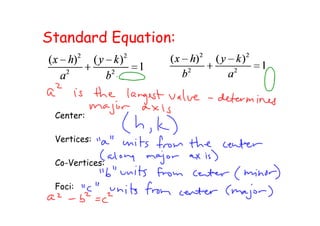 Standard Equation:
(x − h)²/a² + (y − k)²/b² = 1    (x − h)²/b² + (y − k)²/a² = 1
a² is the largest value - determines
major axis
Center: (h, k)
Vertices: "a" units from the center
(along major axis)
Co-Vertices: "b" units from center (minor)
Foci: "c" units from center (major)
a² - b² = c²